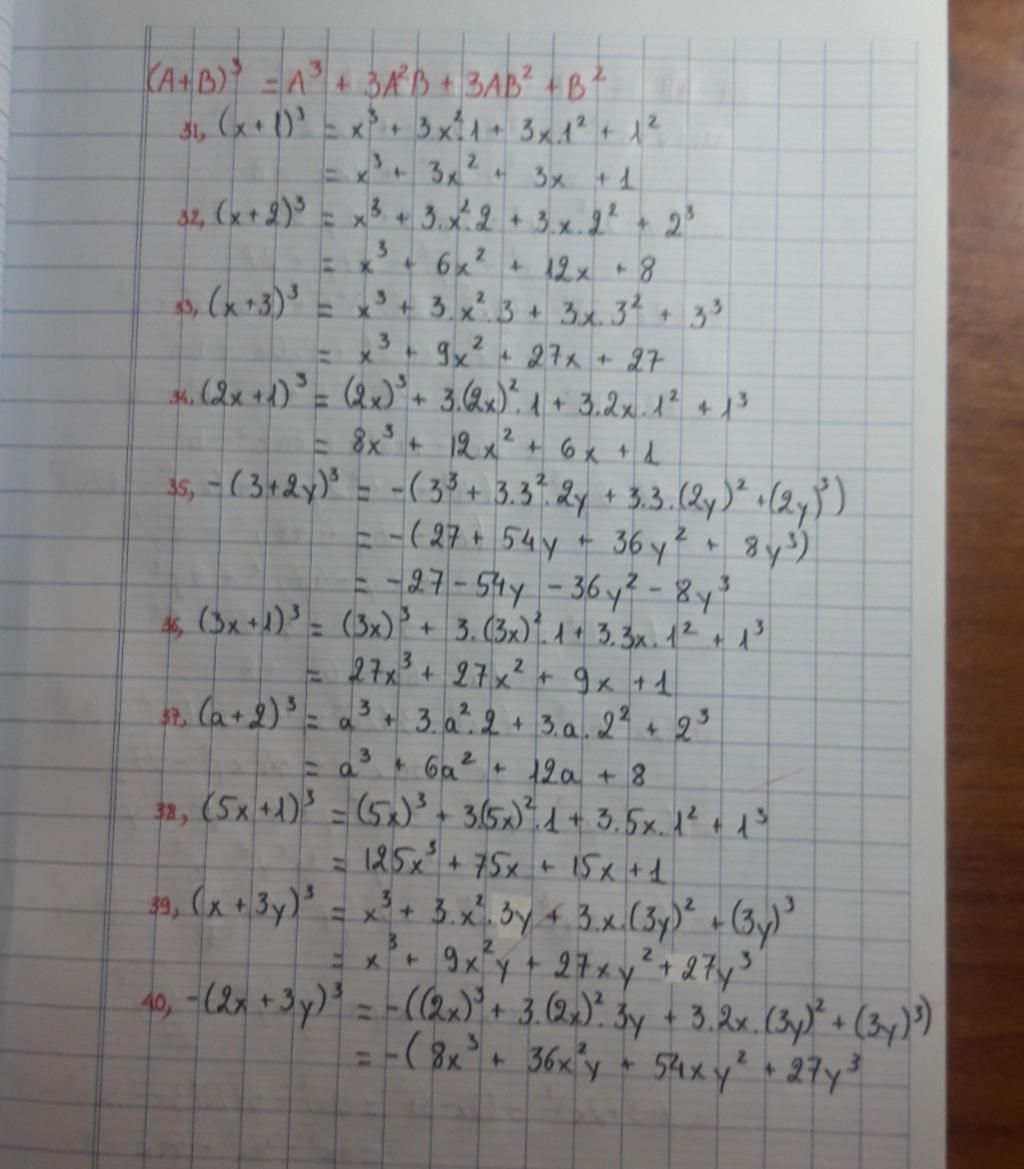 (A+B)³ = A³ + 3A²B + 3AB² + B²
31, (x+1)³ = x³ + 3.x².1 + 3x.1² + 1²
= x³ + 3x² + 3x + 1
32, (x+2)³ = x³ + 3.x².2 + 3.x.2² + 2³
= x³ + 6x² + 12x + 8
33, (x+3)³ = x³ + 3.x².3 + 3x.3² + 3³
= x³ + 9x² + 27x + 27
34, (2x+1)³ = (2x)³ + 3.(2x)².1 + 3.2x.1² + 1³
= 8x³ + 12x² + 6x + 1
35, -(3+2y)³ = -(3³ + 3.3².2y + 3.3.(2y)² + (2y)³)
= -(27 + 54y + 36y² + 8y³)
= -27 - 54y - 36y² - 8y³
36, (3x+1)³ = (3x)³ + 3.(3x)².1 + 3.3x.1² + 1³
= 27x³ + 27x² + 9x + 1
37, (a+2)³ = a³ + 3.a².2 + 3.a.2² + 2³
= a³ + 6a² + 12a + 8
38, (5x+1)³ = (5x)³ + 3(5x)².1 + 3.5x.1² + 1³
= 125x³ + 75x + 15x + 1
39, (x+3y)³ = x³ + 3.x².3y + 3.x.(3y)² + (3y)³
= x³ + 9x²y + 27xy² + 27y³
40, -(2x+3y)³ = -((2x)³ + 3.(2x)².3y + 3.2x.(3y)² + (3y)³)
= -(8x³ + 36x²y + 54xy² + 27y³